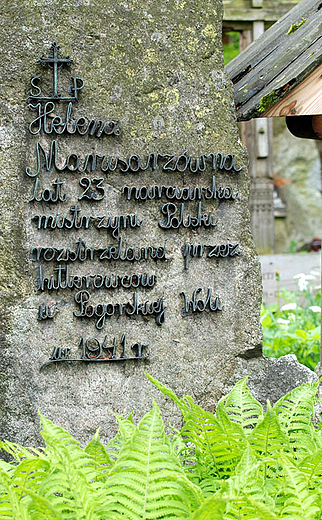 S P
Helena
Marusarzówna
lat 23 narciarska
mistrzyni Polski
rozstrzelana przez
hitlerowców
w Pogorskiej Woli
w r. 1941 r.